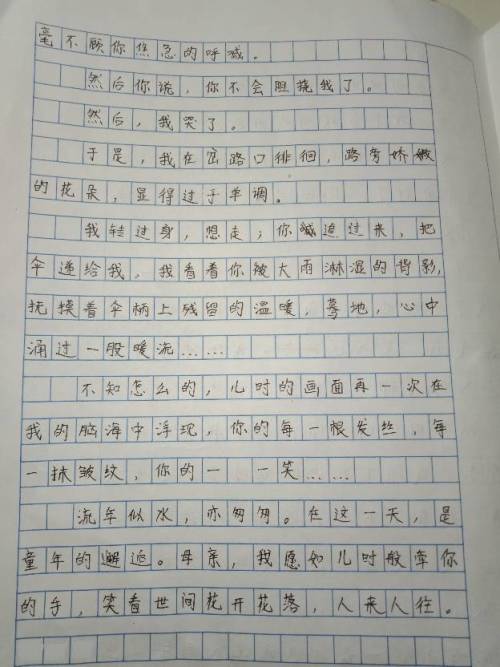 毫不顾你焦急的呼喊。
然后你说,你不会阻挠我了。
然后,我哭了。
于是,我在岔路口徘徊,路旁娇嫩
的花朵,显得过于单调。
我转过身,想走;你喊追过来,把
伞递给我,我看着你被大雨淋湿的背影,
抚摸着伞柄上残留的温暖,蓦地,心中
涌过一股暖流……
不知怎么的,儿时的画面再一次在
我的脑海中浮现,你的每一根发丝,每
一抹皱纹,你的一 一笑……
流年似水,亦匆匆。在这一天,是
童年的邂逅。母亲,我愿如儿时般牵你
的手,笑看世间花开花落,人来人往。